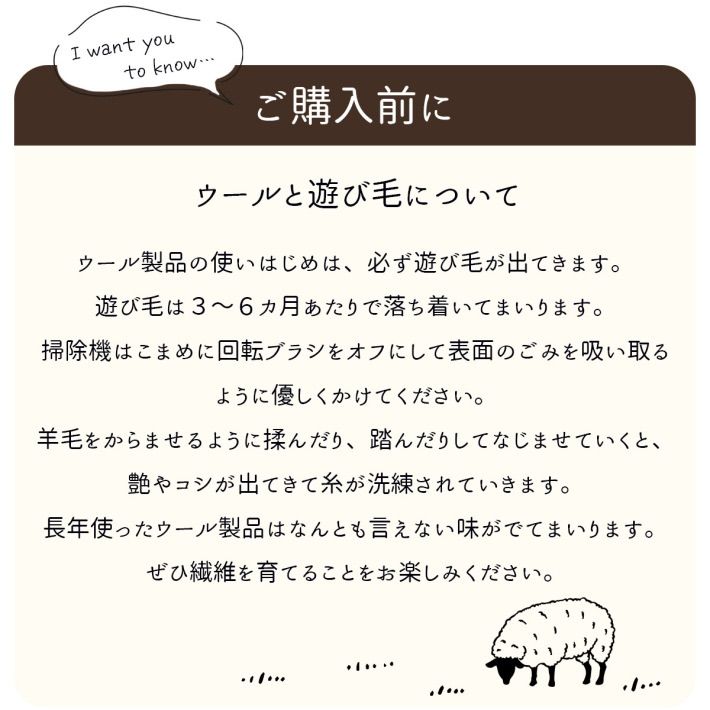 I want you
to know…
ご購入前に
ウールと遊び毛について
ウール製品の使いはじめは、必ず遊び毛が出てきます。
遊び毛は３～６カ月あたりで落ち着いてまいります。
掃除機はこまめに回転ブラシをオフにして表面のごみを吸い取る
ように優しくかけてください。
羊毛をからませるように揉んだり、踏んだりしてなじませていくと、
艶やコシが出てきて糸が洗練されていきます。
長年使ったウール製品はなんとも言えない味がでてまいります。
ぜひ繊維を育てることをお楽しみください。